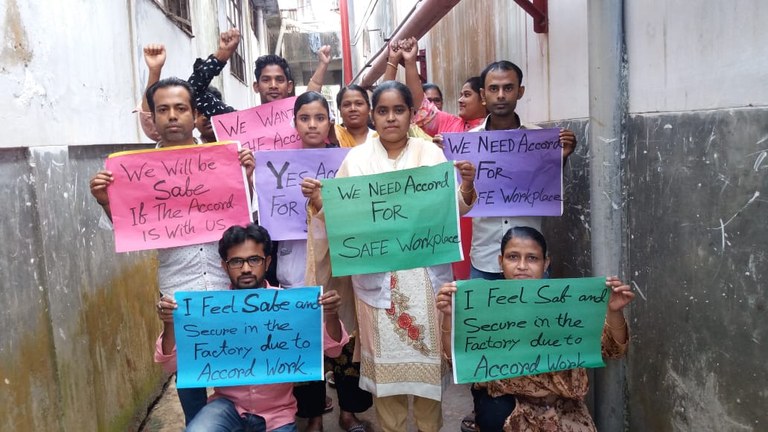 WE WANT
THE ACCO
We Will be
Safe
If The Accord
Is With US
Yes A
For
We Need Accord
For
Safe Workplace
We Need Accord
For
FE Workplace
I Feel Safe and
Secure in the
Factory due to
Accord Work.
I Feel Saf and
Secure in the
Factory due to
Accord Work.